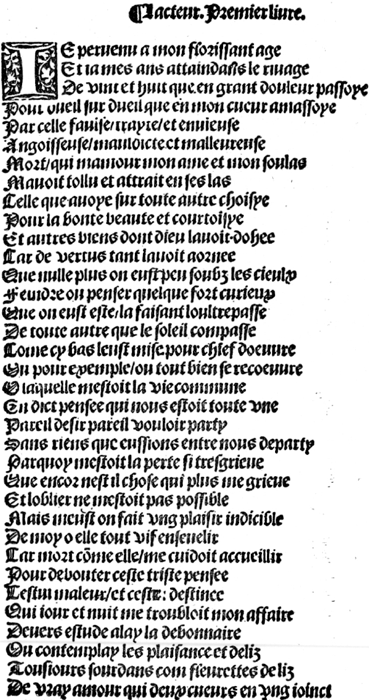 ¶Lacteur. Premier liure.
IE peruenu a mon florissant age
Et ia mes ans attaindans le riuage
De vint et huit que en grant douleur passoye
Pour dueil sur dueil que en mon cueur amassoye
Par celle faulse/traytre/et enuieuse
Angoisseuse/mauldicte et malleureuse
Mort/qui mamour mon ame et mon soulas
Mauoit tollu et attrait en ses las
Celle que auoye sur toute autre choisye
Pour la bonte beaute et courtoisye
Et autres biens dont dieu lauoit dohee
Car de vertus tant lauoit aornee
Que nulle plus on eust peu soubz les cieulx
Feindre ou penser quelque fort curieux
Que on eust este/la faisant loultrepasse
De toute autre que le soleil compasse
Come cy bas leust mise pour chief doeuure
Ou pour exemple/ou tout bien se recoeuure
O laquelle mestoit la vie commune
En dict pensee qui nous estoit toute vne
Pareil desir pareil vouloir party
Sans riens que eussions entre nous departy
Parquoy mestoit la perte si tresgrieue
Que encor nest il chose qui plus me grieue
Et loblier ne mestoit pas possible
Mais meust on fait vng plaisir indicible
De moy o elle tout vif enseuelir
Car mort cõme elle/me cuidoit accueillir
Pour debouter ceste triste pensee
Cestui maleur/et ceste: destinee
Qui iour et nuit me troubloit mon affaire
Deuers estude alay la debonnaire
Ou contemplay les plaisance et deliz
Tousiours sourdans com fleurettes de liz
De vray amour qui deux cueurs en vng ioinct